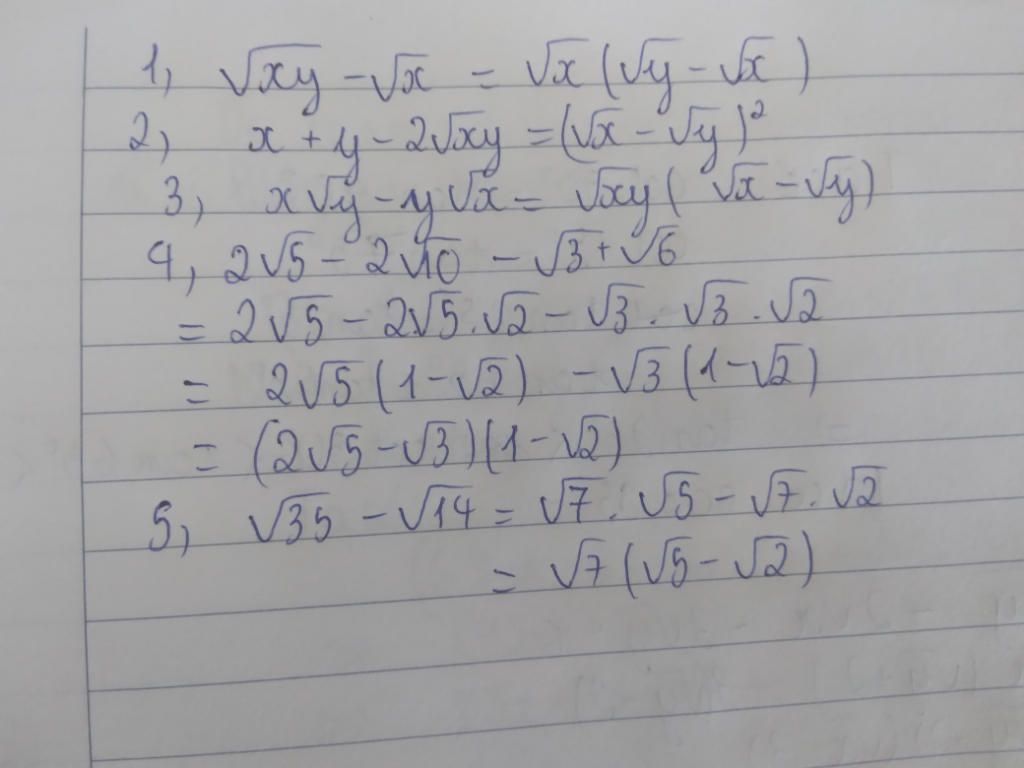 1, √xy - √x = √x (√y - √x )
2, x + y - 2√xy = (√x - √y )²
3, x√y - y√x = √xy ( √x - √y)
4, 2√5 - 2√10 - √3 + √6
= 2√5 - 2√5.√2 - √3 . √3 . √2
= 2√5 (1-√2) - √3 (1-√2)
= (2√5-√3)(1-√2)
5, √35 - √14 = √7. √5 - √7. √2
= √7 (√5 - √2)